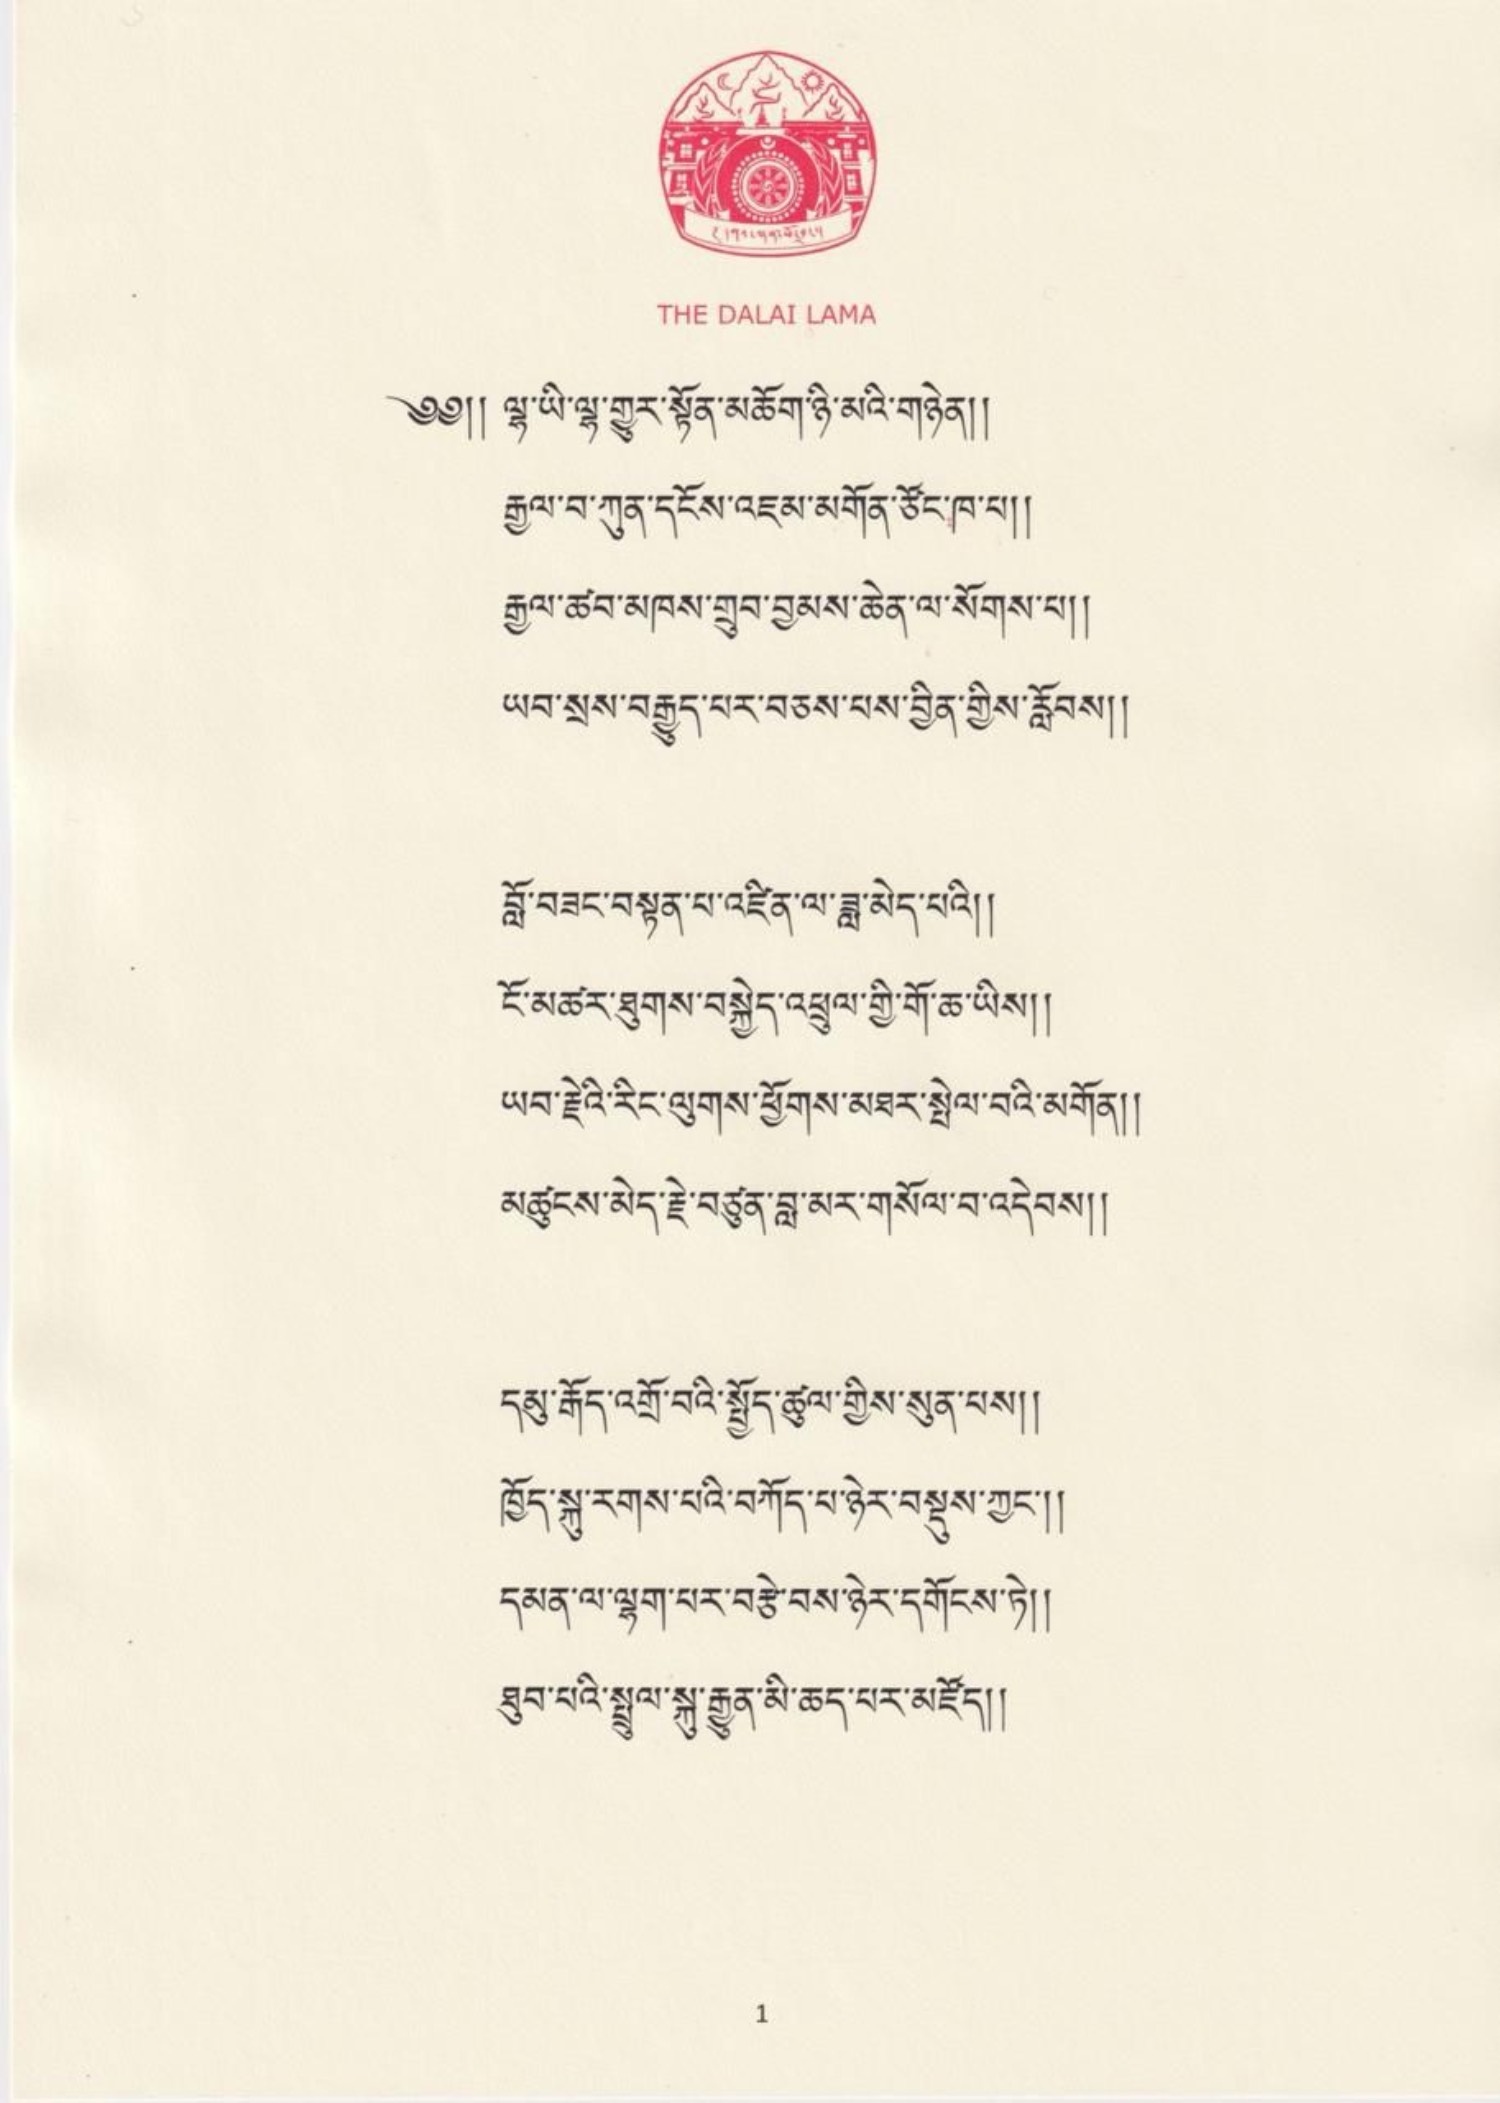 THE DALAI LAMA
༄༅།། ལྷ་ཡི་ལྷ་གྱུར་སྟོན་མཆོག་ཉི་མའི་གཉེན།།
རྒྱལ་བ་ཀུན་དངོས་འཇམ་མགོན་ཙོང་ཁ་པ།།
རྒྱལ་ཚབ་མཁས་གྲུབ་བྱམས་ཆེན་ལ་སོགས་པ།།
ཡབ་སྲས་བརྒྱུད་པར་བཅས་པས་བྱིན་གྱིས་རློབས།།
བློ་བཟང་བསྟན་པ་འཛིན་ལ་ཟླ་མེད་པའི།།
ངོ་མཚར་ཐུགས་བསྐྱེད་འཕྲུལ་གྱི་གོ་ཆ་ཡིས།།
ཡབ་རྗེའི་རིང་ལུགས་ཕྱོགས་མཐར་སྤེལ་བའི་མགོན།།
མཚུངས་མེད་རྗེ་བཙུན་བླ་མར་གསོལ་བ་འདེབས།།
དམུ་རྒོད་འགྲོ་བའི་སྤྱོད་ཚུལ་གྱིས་སུན་པས།།
ཁྱོད་སྐུ་རགས་པའི་བཀོད་པ་ཉེར་བསྡུས་ཀྱང་།།
དམན་ལ་ལྷག་པར་བརྩེ་བས་ཉེར་དགོངས་ཏེ།།
ཐུབ་པའི་སྤྲུལ་སྐུ་རྒྱུན་མི་ཆད་པར་མཛོད།།
1